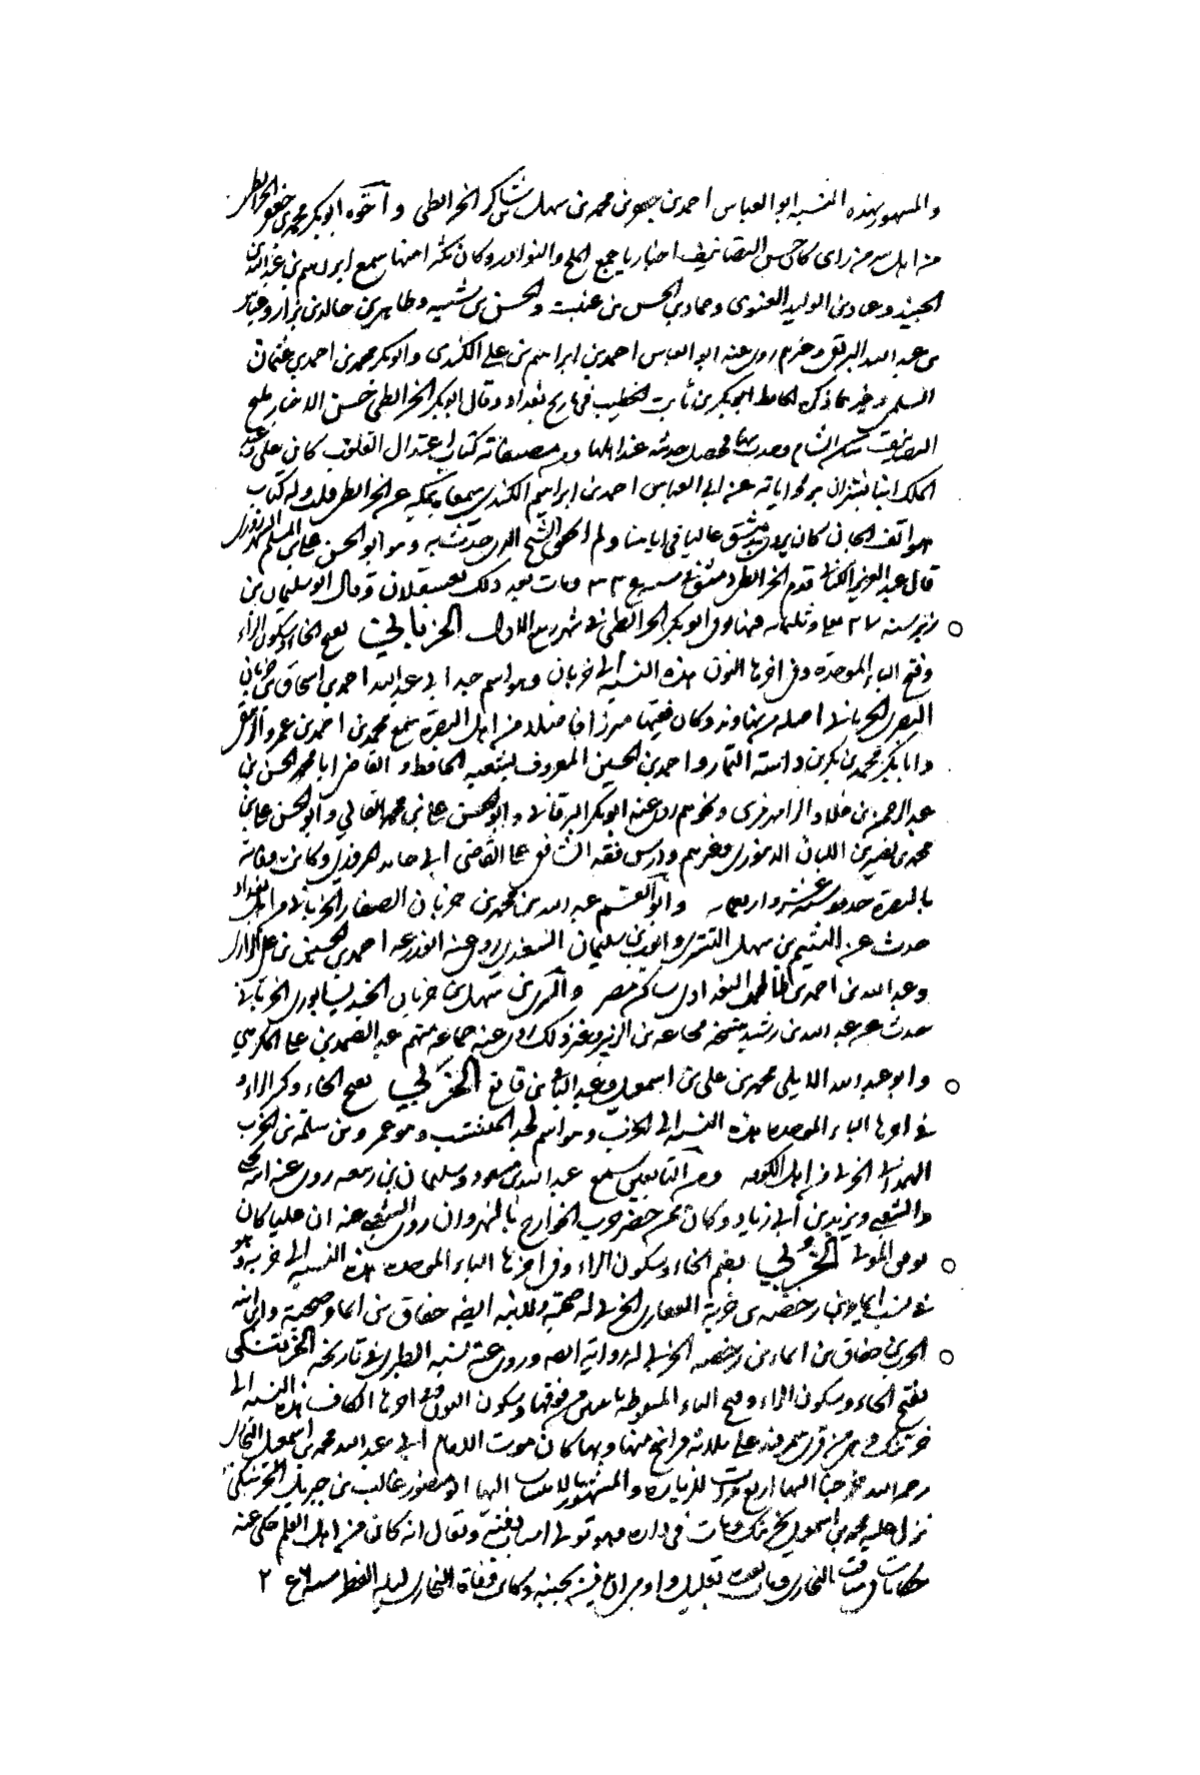 والمشهور بهذه النسبة ابو العباس احمد بن جعفر بن محمد بن سهل بن شاكر الخرائطى واخوه ابو بكر محمد بن جعفر الخرائطى
من اهل سر من راى كان حسن التصانيف اخباريا جمع الملح والنوادر وكان مكثرا منها سمع ابراهيم بن عبد الله بن
الجنيد وعباد بن الوليد الغنوى وحماد بن الحسن بن عنبسة والحسن بن وطاهر بن خالد بن نزار
بن عبد الله الترقفى وغيرهم روى عنه ابو العباس احمد بن ابراهيم بن على الكندى وابو بكر محمد بن احمد بن عثمان
السلمى وغيرهما ذكره الحافظ ابو بكر بن ثابت الخطيب فى تاريخ بغداد وقال ابو بكر الخرائطى حسن الاخبار مليح
التصانيف سكن الشام وحدث بها فحصل حديثه عند اهلها ومن مصنفاته كتاب اعتلال القلوب كان على بن عبد
الملك ابن بشران يرويه عن ابى العباس احمد بن ابراهيم الكندى سمعه بمكة عن الخرائطى قلت وله كتاب
هواتف الجان كان بدمشق عاليا فى ايامنا ولم الحق الشيخ الذى حدث به وهو ابو الحسن على بن المسلم
قال عبد العزيز الكنانى قدم الخرائطى دمشق فى سنة ومات بعد ذلك بعسقلان وقال ابو سليمان بن
زبر سنة ٢٧ وثلثمائة فيها توفى ابو بكر الخرائطى فى شهر ربيع الاول الخربانى بفتح الخاء وسكون الراء
وفتح الباء الموحدة وفى اخرها النون هذه النسبة الى خربان وهو اسم جد ابى عبد الله احمد بن اسحاق بن خربان
البصرى الخربانى اصله من نهاوند وكان فقيها مبرزا فاضلا من اهل البصرة سمع محمد بن احمد بن عمرو
وابا بكر محمد بن بكر بن داسه التمار واحمد بن الحسين المعروف بشعبة الحافظ والقاضى ابا محمد الحسن بن
عبد الرحمن بن خلاد الرامهرمزى ونحوهم روى عنه ابو بكر البرقانى وابو الحسن على بن محمد الفالى وابو الحسن على بن
محمد بن نصر بن اللبان الدينورى وغيرهم ودرس فقه الشافعى على القاضى ابى حامد المروزى وكانت وفاته
بالبصرة حدود سنة عشر واربعمائة وابو القسم عبد الله بن محمد بن خربان الصفار الخربانى من اهل بغداد
حدث عن الهيثم بن سهل التسترى وايوب بن سليمان السغدى روى عنه ابو زرعة احمد بن الحسين بن على الرازى
وعبد الله بن احمد بن طالب البغدادى ساكن مصر والسرى بن سهل بن خربان الجنديسابورى الخربانى
حدث عن عبد الله بن رشيد بنسخة مجاعة بن الزبير وغير ذلك روى عنه جماعة منهم عبد الصمد بن على المكرمى
وابو عبد الله الايلى محمد بن على بن اسمعيل وعبد الباقى بن قانع الخَرِبى بفتح الخاء وكسر الراء و
فى اخرها الباء الموحدة هذه النسبة الى الخرب وهو اسم لجد المنتسب وهو عمرو بن سلمة بن الخرب
الهمدانى الخربى من اهل الكوفة ومن التابعين سمع عبد الله بن مسعود وسليمان بن ربيعة روى عنه ابنه يحيى
والشعبى ويزيد بن ابى زياد وكان ممن حضر حرب الخوارج بالنهروان روى الشعبى عنه ان عليا كان
يوصى الخُرْبى بضم الخاء وسكون الراء وفى اخرها الباء الموحدة هذه النسبة الى خربة وهو
فى نسب ايماء بن رحضة بن خربة الغفارى الخربى له صحبة ولابنه ايضا خفاف بن ايماء صحبة وابن ابنه
الحرث بن خفاف بن ايماء بن رحضة الخربى له رواية ايضا وروى عنه نسبه الطبرى فى تاريخه الخرتنكى
بفتح الخاء وسكون الراء وفتح التاء المنقوطة باثنتين من فوقها وسكون النون وفى اخرها الكاف هذه النسبة الى
خرتنك وهى من قرى سمرقند على ثلاثة فراسخ منها وبها كان موت الامام ابى عبد الله محمد بن اسمعيل البخارى
رحمه الله خرجنا اليها اربع مرات للزيارة والمشهور بالانتساب اليها ابو منصور غالب بن جبريل الخرتنكى
نزل عليه محمد بن اسمعيل بخرتنك ومات فى داره وهو تولى اسباب دفنه ويقال انه كان من اهل العلم حكى عنه
حكايات من مناقب البخارى ومات بعده بقليل واوصى ان يدفن بجنبه وكانت وفاة البخارى ليلة الفطر سنة